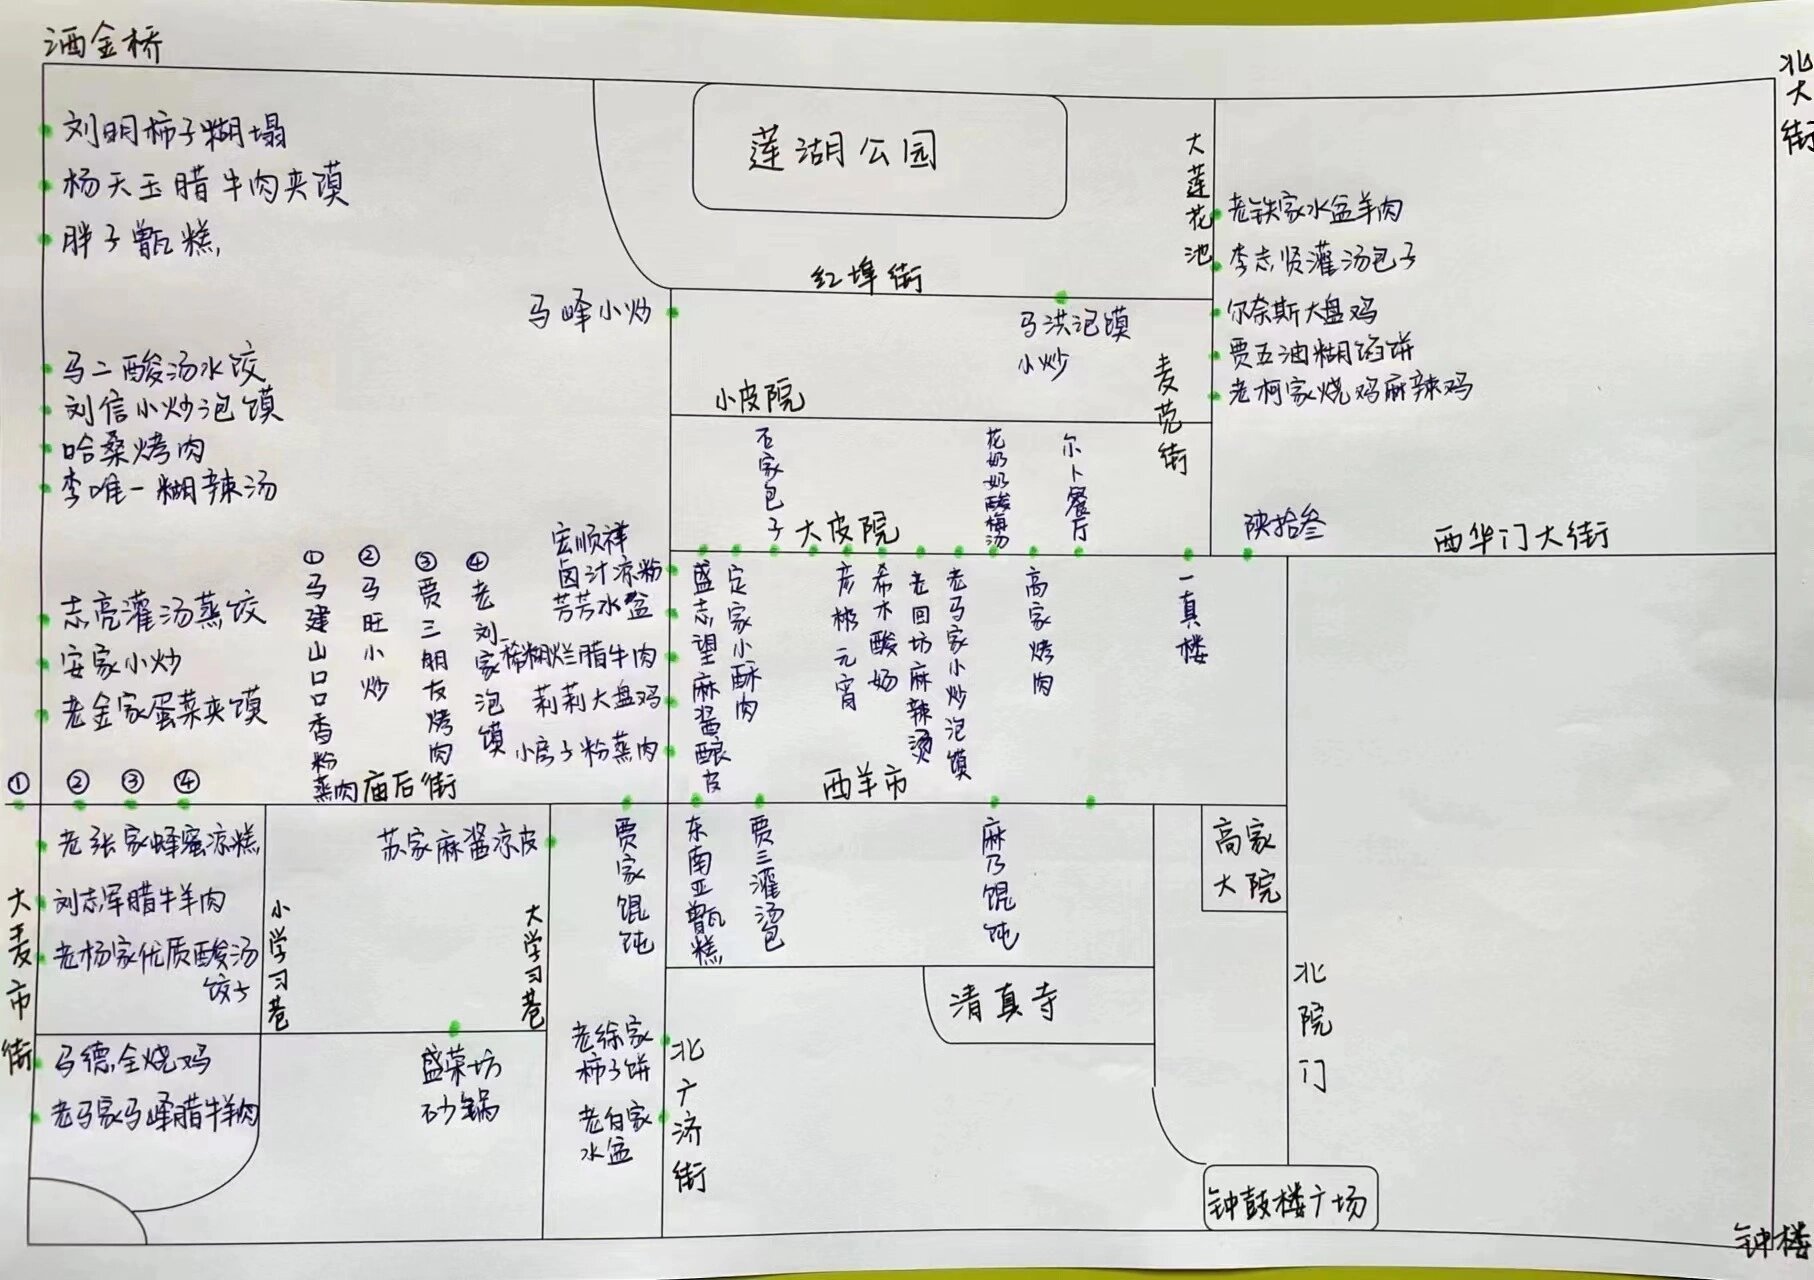 洒金桥
北大街
刘明柿子糊塌
杨天玉腊牛肉夹馍
胖子甑糕
莲湖公园
大莲花池
老铁家水盆羊肉
李志贤灌汤包子
尔奈斯大盘鸡
贾五油糊馅饼
老柯家烧鸡麻辣鸡
红埠街
马峰小炒
马洪泡馍
小炒
麦苋街
小皮院
马二酸汤水饺
刘信小炒泡馍
哈桑烤肉
李唯一糊辣汤
石家包子
花奶奶酸梅汤
尔卜餐厅
大皮院
陕拾叁
西华门大街
志亮灌汤蒸饺
安家小炒
老金家蛋菜夹馍
①马建山口口香粉蒸肉
②马旺小炒
③贾三朋友烤肉
④老刘家泡馍
宏顺祥
卤汁凉粉
芳芳水盆
稀糊烂腊牛肉
莉莉大盘鸡
小房子粉蒸肉
盛志望麻酱酿皮
定家小酥肉
彦彬元宵
希木酸奶
老回坊麻辣烫
老马家小炒泡馍
高家烤肉
一真楼
① ② ③ ④
庙后街
西羊市
老张家蜂蜜凉糕
刘志军腊牛羊肉
老杨家优质酸汤
饺子
大麦市街
小学习巷
苏家麻酱凉皮
大学习巷
贾家馄饨
东南亚甑糕
贾三灌汤包
麻乃馄饨
高家
大院
清真寺
北院门
马德全烧鸡
老马家马峰腊牛羊肉
盛荣坊
砂锅
老徐家
柿子饼
老白家
水盆
北广济街
钟鼓楼广场
钟楼